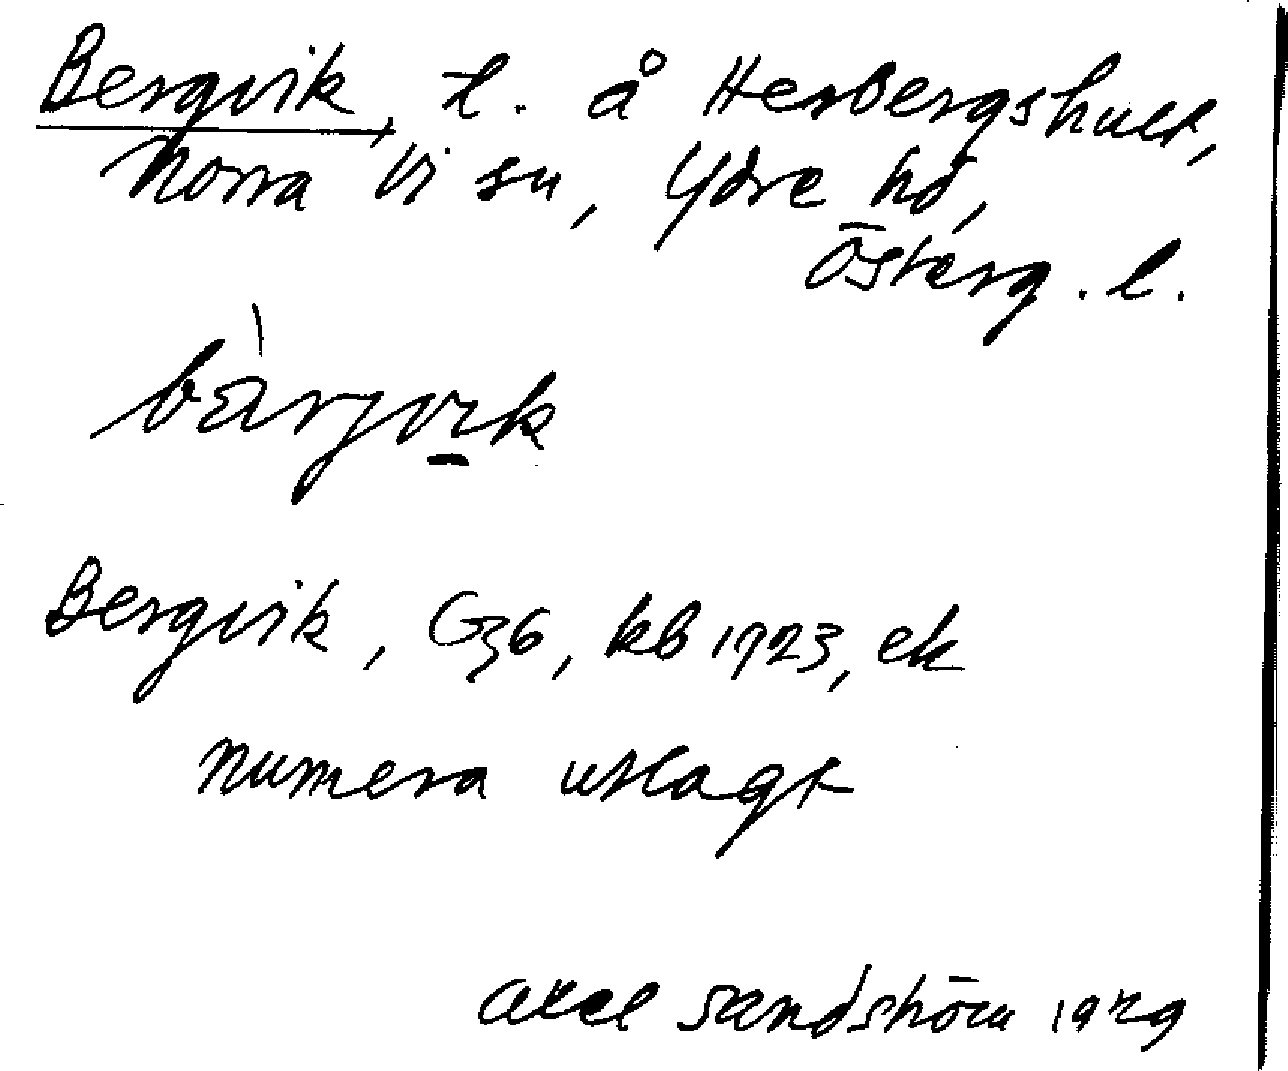 Bergvik, l. å Herbergshult,
Norra Vi sn, Ydre hd,
Österg. l.
bàrjvik
Bergvik, G36, kb 1723, ek
numera utlagt
Axel Sandström 1929